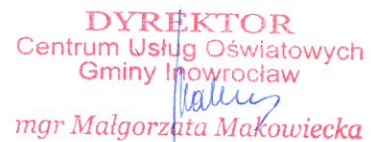 DYREKTOR
Centrum Usług Oświatowych
Gminy Inowrocław
mgr Małgorzata Makowiecka